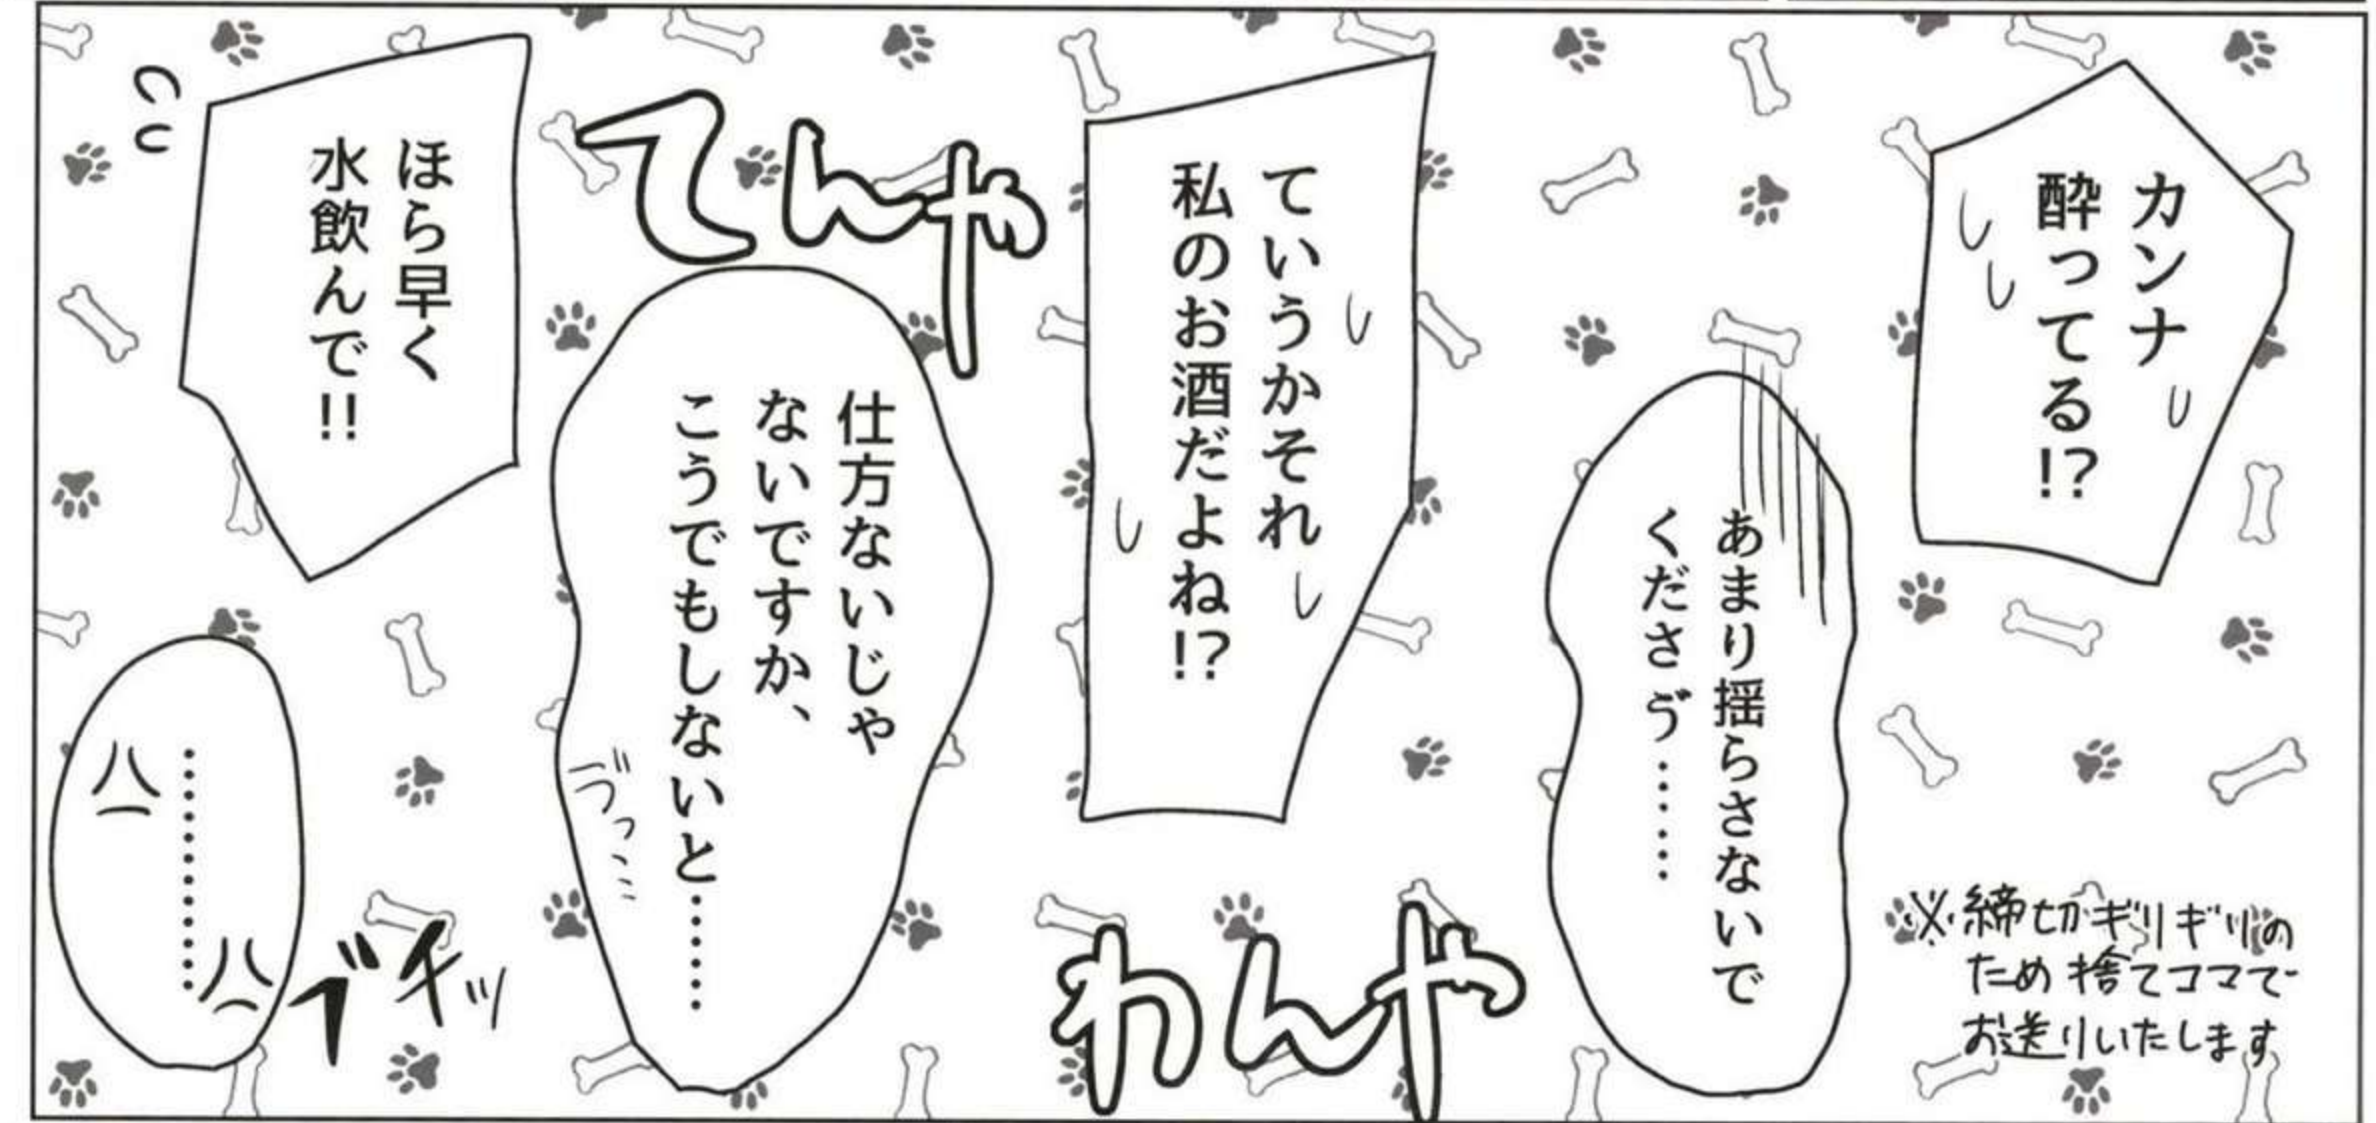 カンナ
酔ってる!?
あまり揺らさないで
くださゔ……
※締切ギリギリの
ため捨てコマで
お送りいたします
ていうかそれ
私のお酒だよね!?
てんや
わんや
仕方ないじゃ
ないですか、
こうでもしないと……
ゔっ…
ほら早く
水飲んで!!
………
ブチッ